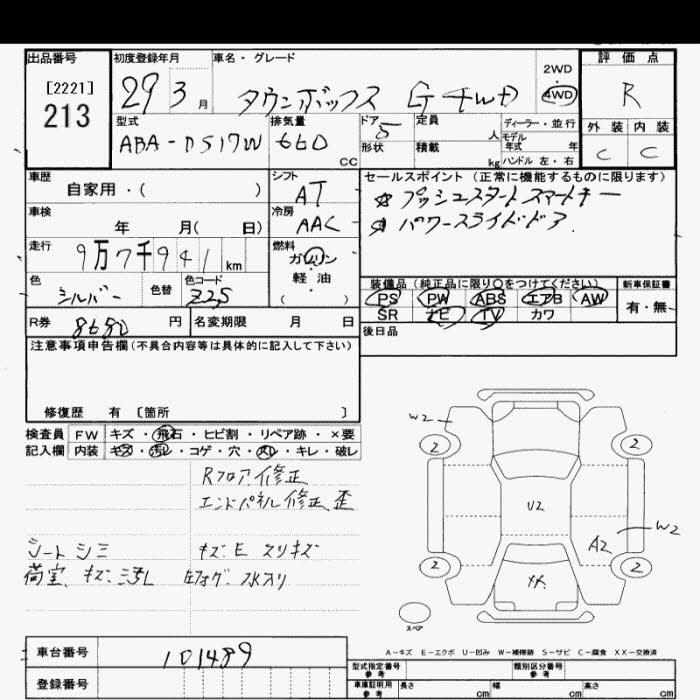 出品番号 初度登録年月 車名・グレード 評価点
[2221]
213
29 3 月 タウンボックス G 4WD 2WD 4WD R
型式 排気量 ドア 定員 ディーラー・並行 外装 内装
ABA-DS17W 660 CC 5 人 モデル年式 年 C C
形状 積載 kg ハンドル 左・右
車歴 シフト セールスポイント (正常に機能するものに限ります)
自家用・( ) AT ☆ プッシュスタート スマートキー
車検 冷房 ☆ パワースライドドア
年 月( 日) AAC
走行 燃料
9万7千941 km ガソリン・軽油
( )
装備品(純正品に限り〇をつけてください) 新車保証書
色 色替 色コード PS PW ABS エアB AW 有・無
シルバー Z25 SR ナビ TV カワ
R券 8680 円 名変期限 月 日 後日品
注意事項申告欄(不具合内容等は具体的に記入して下さい)
修復歴 有 〔箇所 〕
検査員 FW キズ・飛石・ヒビ割・リペア跡・×要
記入欄 内装 キズ・汚レ・コゲ・穴・スレ・キレ・破レ
Rフロア修正
エンドパネル修正、歪
シートシミ キズ E スリキズ
荷室、キズ、汚レ 左フォグ 水入り
W2
2 2
U2
A2 W2
2 2
スペア
A-キズ E-エクボ U-凹み W-補修跡 S-サビ C-腐食 XX-交換済
車台番号 101489
登録番号
型式指定番号 参考 類別区分番号 参考
車庫証明用 参考 長さ cm 幅 cm 高さ cm